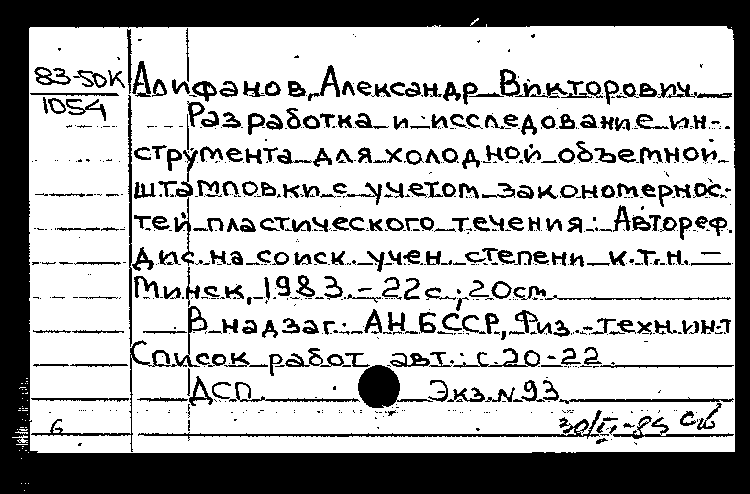 83-50К
1054
Алифанов, Александр Викторович
Разработка и исследование ин-
струмента для холодной объемной
штамповки с учетом закономернос-
тей пластического течения: Автореф.
Дис. на соиск. учен. степени к.т.н. —
Минск, 1983. - 22с.; 20см.
В надзаг.: АН БССР, Физ.-техн.инт
Список работ авт.: с.20-22.
ДСП. Экз.N93.
6